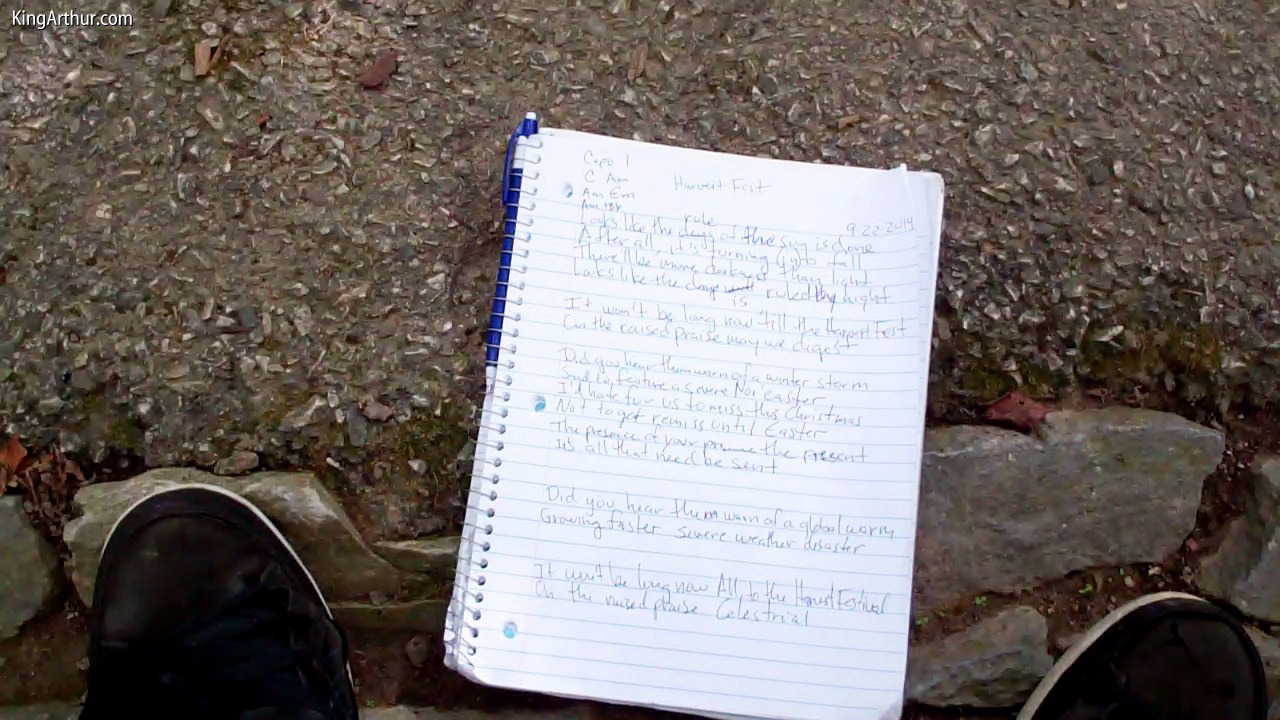 KingArthur.com
Capo 1
C Am
Am Em
Harvest Fest
Am
9.22.2014
rule
Looks like the of the sun is done
After all it's turning to fall
There'll be more darkness than light
Looks like the days ruled by night
is
It won't be long now 'till the Harvest Fest
On the raised praise may we digest
Did you hear them warn of a winter storm
Said to feature a severe Nor'easter
I'd hate for us to miss this Christmas
Not to get remiss until Easter
The presence of your the present
It's all that need be sent
Did you hear them warn of a global warm
Growing faster severe weather disaster
It won't be long now All to the Harvest Festival
On the raised praise Celestrial